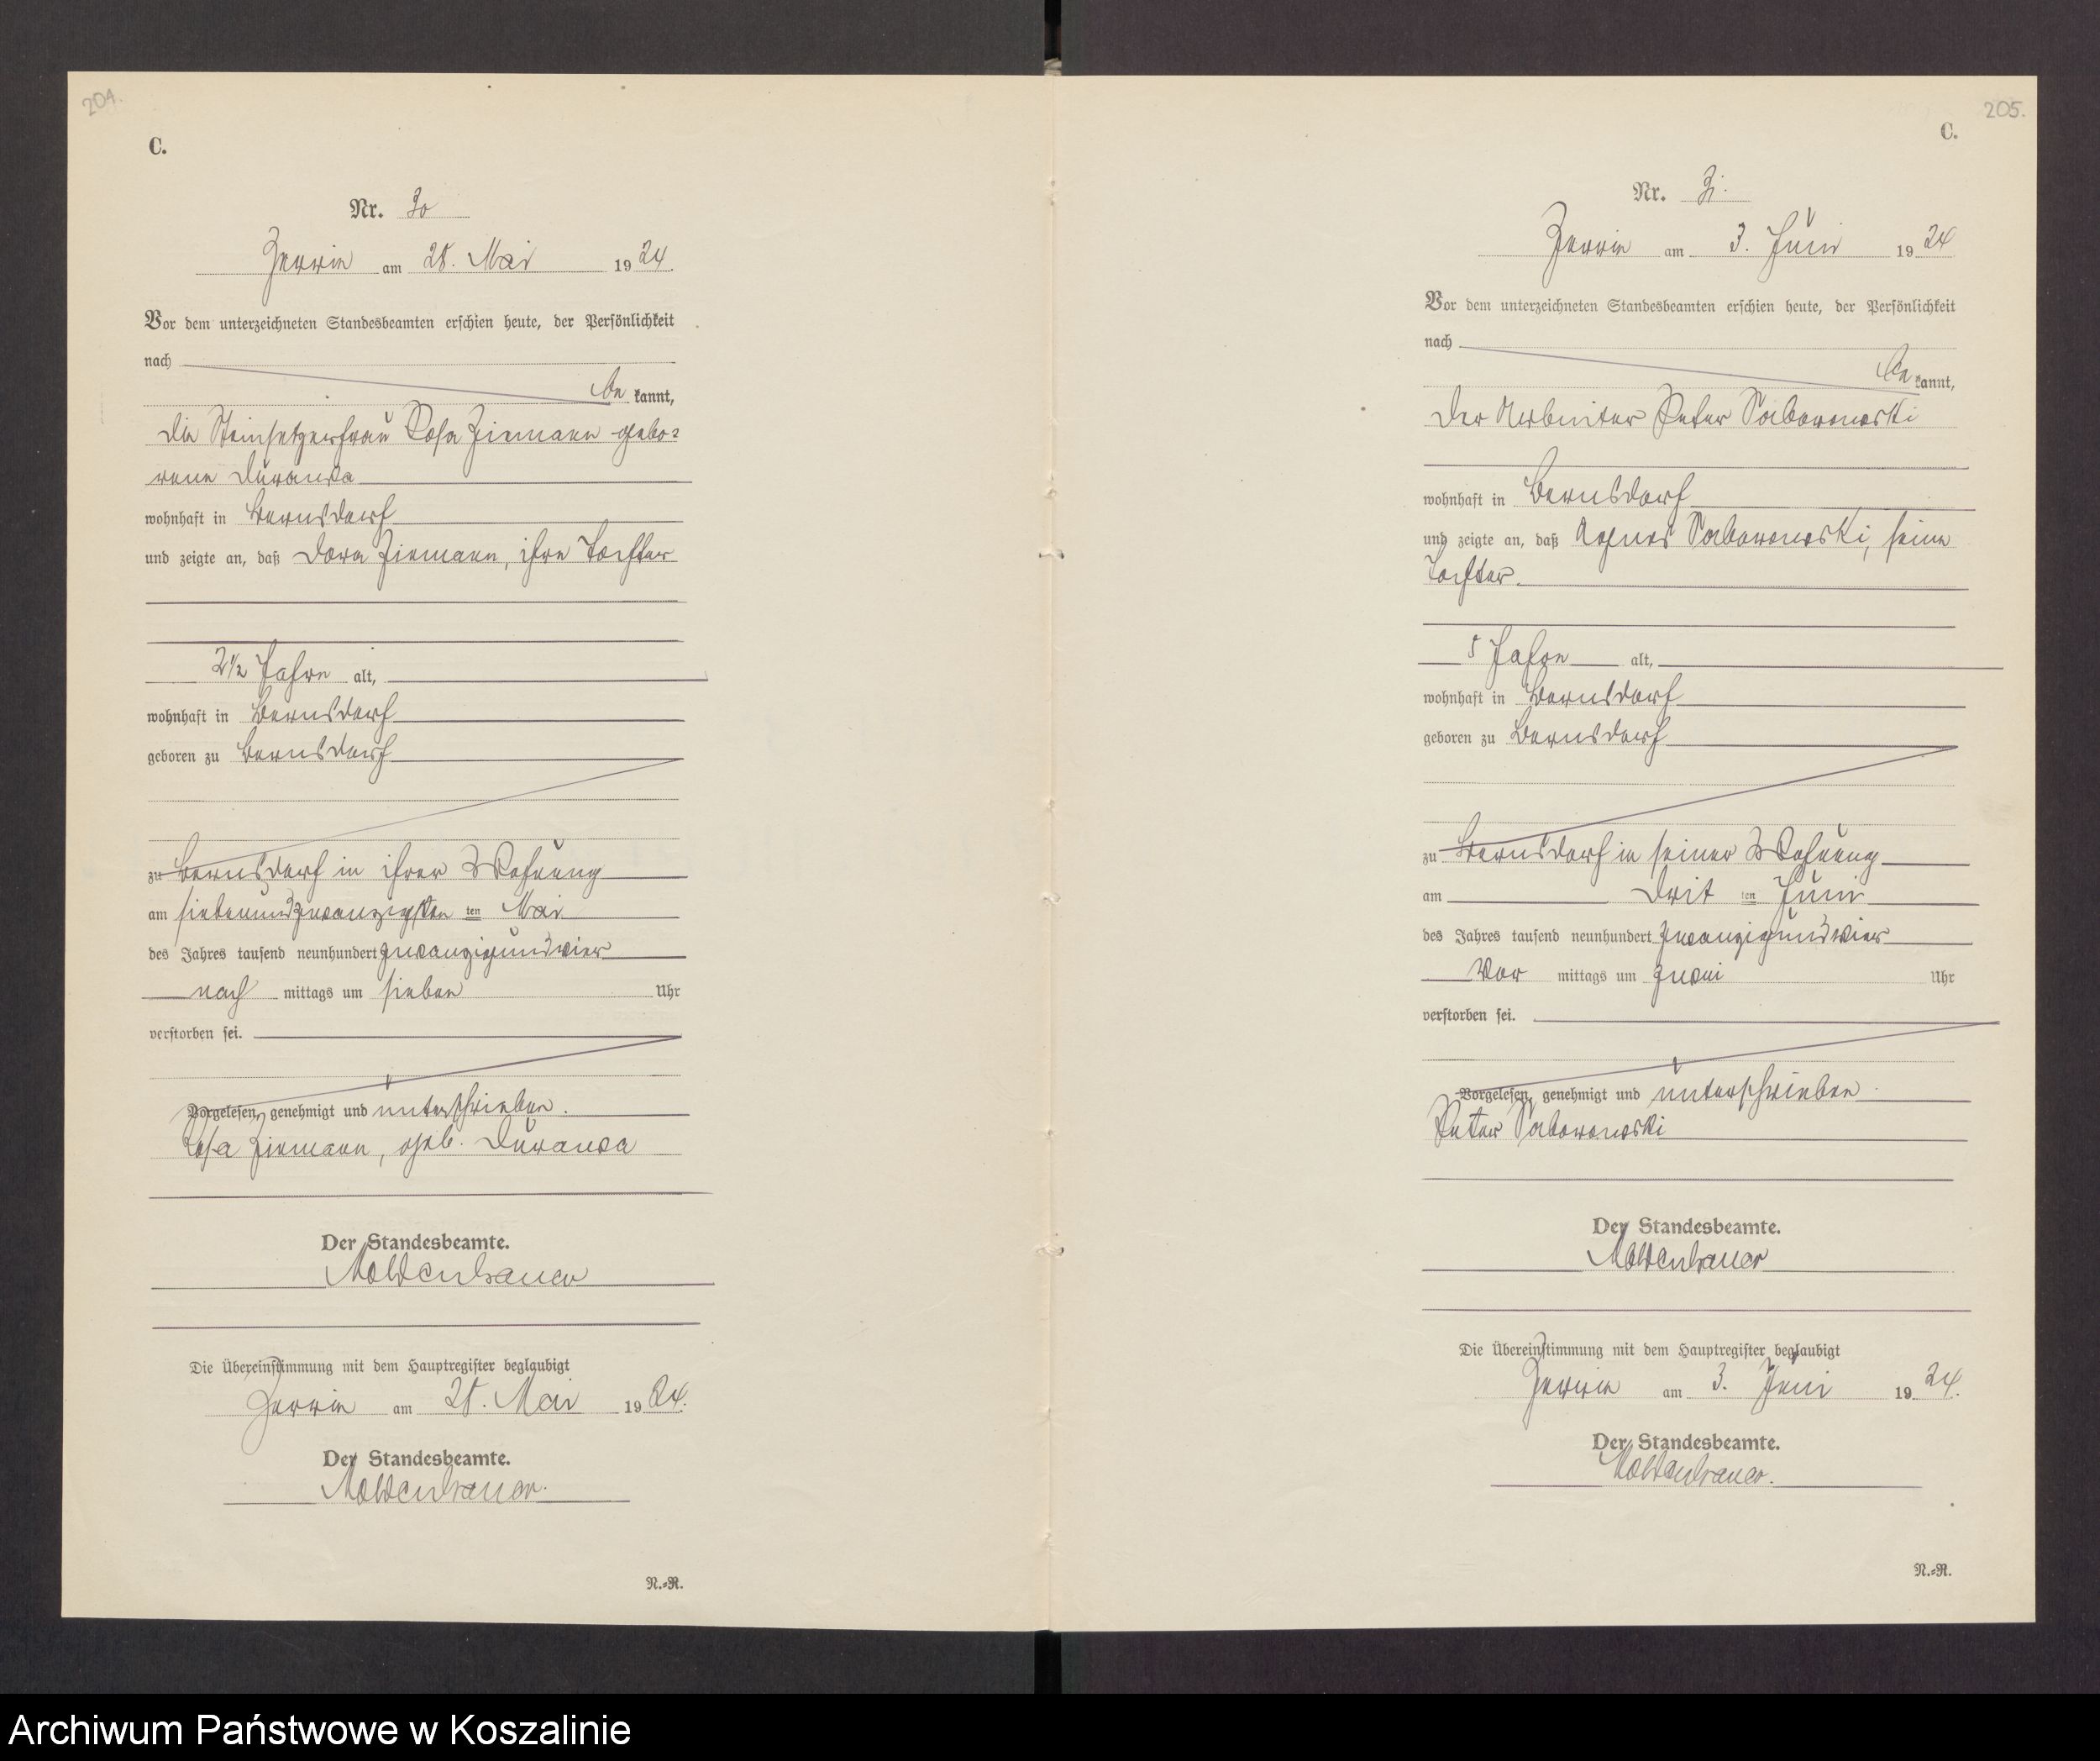 204.
C.
Nr. 30
Zerrin am 28. Mai 1924.
Vor dem unterzeichneten Standesbeamten erschien heute, der Persönlichkeit
nach
be kannt,
die Steinsetzerfrau Rosa Ziemann gebo=
rene Durawa
wohnhaft in Bernsdorf
und zeigte an, daß Dora Ziemann, ihre Tochter
2½ Jahre alt,
wohnhaft in Bernsdorf
geboren zu Bernsdorf
zu Bernsdorf in ihrer Wohnung
am siebenundzwanzigsten ten Mai
des Jahres tausend neunhundert zwanzigundvier
nach mittags um sieben Uhr
verstorben sei.
Vorgelesen, genehmigt und unterschrieben.
Rosa Ziemann, geb. Durawa
Der Standesbeamte.
Moldenhauer
Die Übereinstimmung mit dem Hauptregister beglaubigt
Zerrin am 28. Mai 1924.
Der Standesbeamte.
Moldenhauer.
N.=R.
205.
C.
Nr. 31.
Zerrin am 3. Juni 1924
Vor dem unterzeichneten Standesbeamten erschien heute, der Persönlichkeit
nach
be kannt,
der Arbeiter Peter Saborowski
wohnhaft in Bernsdorf
und zeigte an, daß Agnes Saborowski, seine
Tochter
5 Jahre alt,
wohnhaft in Bernsdorf
geboren zu Bernsdorf
zu Bernsdorf in seiner Wohnung
am drit ten Juni
des Jahres tausend neunhundert zwanzigundvier
Vor mittags um zwei Uhr
verstorben sei.
Vorgelesen, genehmigt und unterschrieben.
Peter Saborowski
Der Standesbeamte.
Moldenhauer
Die Übereinstimmung mit dem Hauptregister beglaubigt
Zerrin am 3. Juni 1924.
Der Standesbeamte.
Moldenhauer.
N.=R.
Archiwum Państwowe w Koszalinie